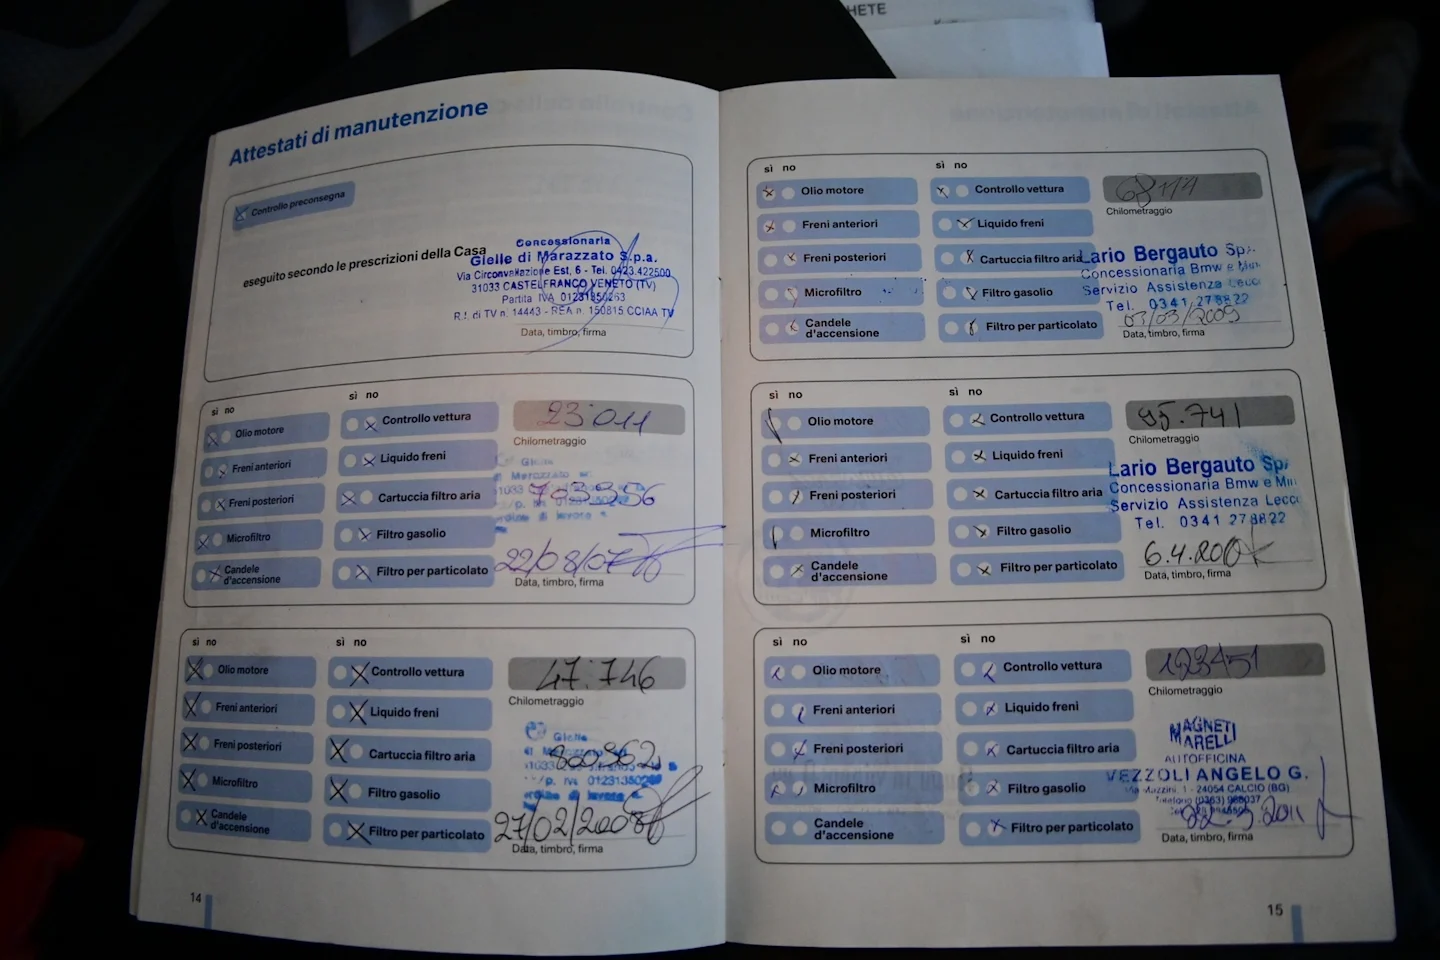 HETE
Attestati di manutenzione
Controllo preconsegna
eseguito secondo le prescrizioni della Casa
Concessionaria
Gielle di Marazzato S.p.a.
Via Circonvallazione Est, 6 - Tel. 0423.422500
31033 CASTELFRANCO VENETO (TV)
Partita IVA 01231350263
R.I. di TV n. 14443 - REA n. 150815 CCIAA TV
Data, timbro, firma
sì no
sì no
Olio motore
Controllo vettura
23011
Chilometraggio
Freni anteriori
Liquido freni
Gielle
di Marazzato
Freni posteriori
Cartuccia filtro aria
Microfiltro
Filtro gasolio
ordine di lavoro n.
Candele
d'accensione
Filtro per particolato
22/08/07
Data, timbro, firma
sì no
sì no
Olio motore
Controllo vettura
47.746
Chilometraggio
Freni anteriori
Liquido freni
Gielle
Freni posteriori
Cartuccia filtro aria
800362
Microfiltro
Filtro gasolio
ordine di lavoro n.
Candele
d'accensione
Filtro per particolato
27/02/2008
Data, timbro, firma
14
sì no
sì no
Olio motore
Controllo vettura
Chilometraggio
Freni anteriori
Liquido freni
Freni posteriori
Cartuccia filtro aria
Lario Bergauto Sp
Concessionaria Bmw e Mini
Microfiltro
Filtro gasolio
Servizio Assistenza Lecco
Tel. 0341 278822
Candele
d'accensione
Filtro per particolato
03/03/2009
Data, timbro, firma
sì no
sì no
Olio motore
Controllo vettura
95.741
Chilometraggio
Freni anteriori
Liquido freni
Lario Bergauto Sp
Freni posteriori
Cartuccia filtro aria
Concessionaria Bmw e Mini
Servizio Assistenza Lecco
Microfiltro
Filtro gasolio
Tel. 0341 278822
Candele
d'accensione
Filtro per particolato
Data, timbro, firma
sì no
sì no
Olio motore
Controllo vettura
123451
Chilometraggio
Freni anteriori
Liquido freni
MAGNETI
MARELLI
Freni posteriori
Cartuccia filtro aria
AUTOFFICINA
VEZZOLI ANGELO G.
Microfiltro
Filtro gasolio
Via Mazzini, 1 - 24054 CALCIO (BG)
Telefono (0363) 968037
Candele
d'accensione
Filtro per particolato
Data, timbro, firma
15